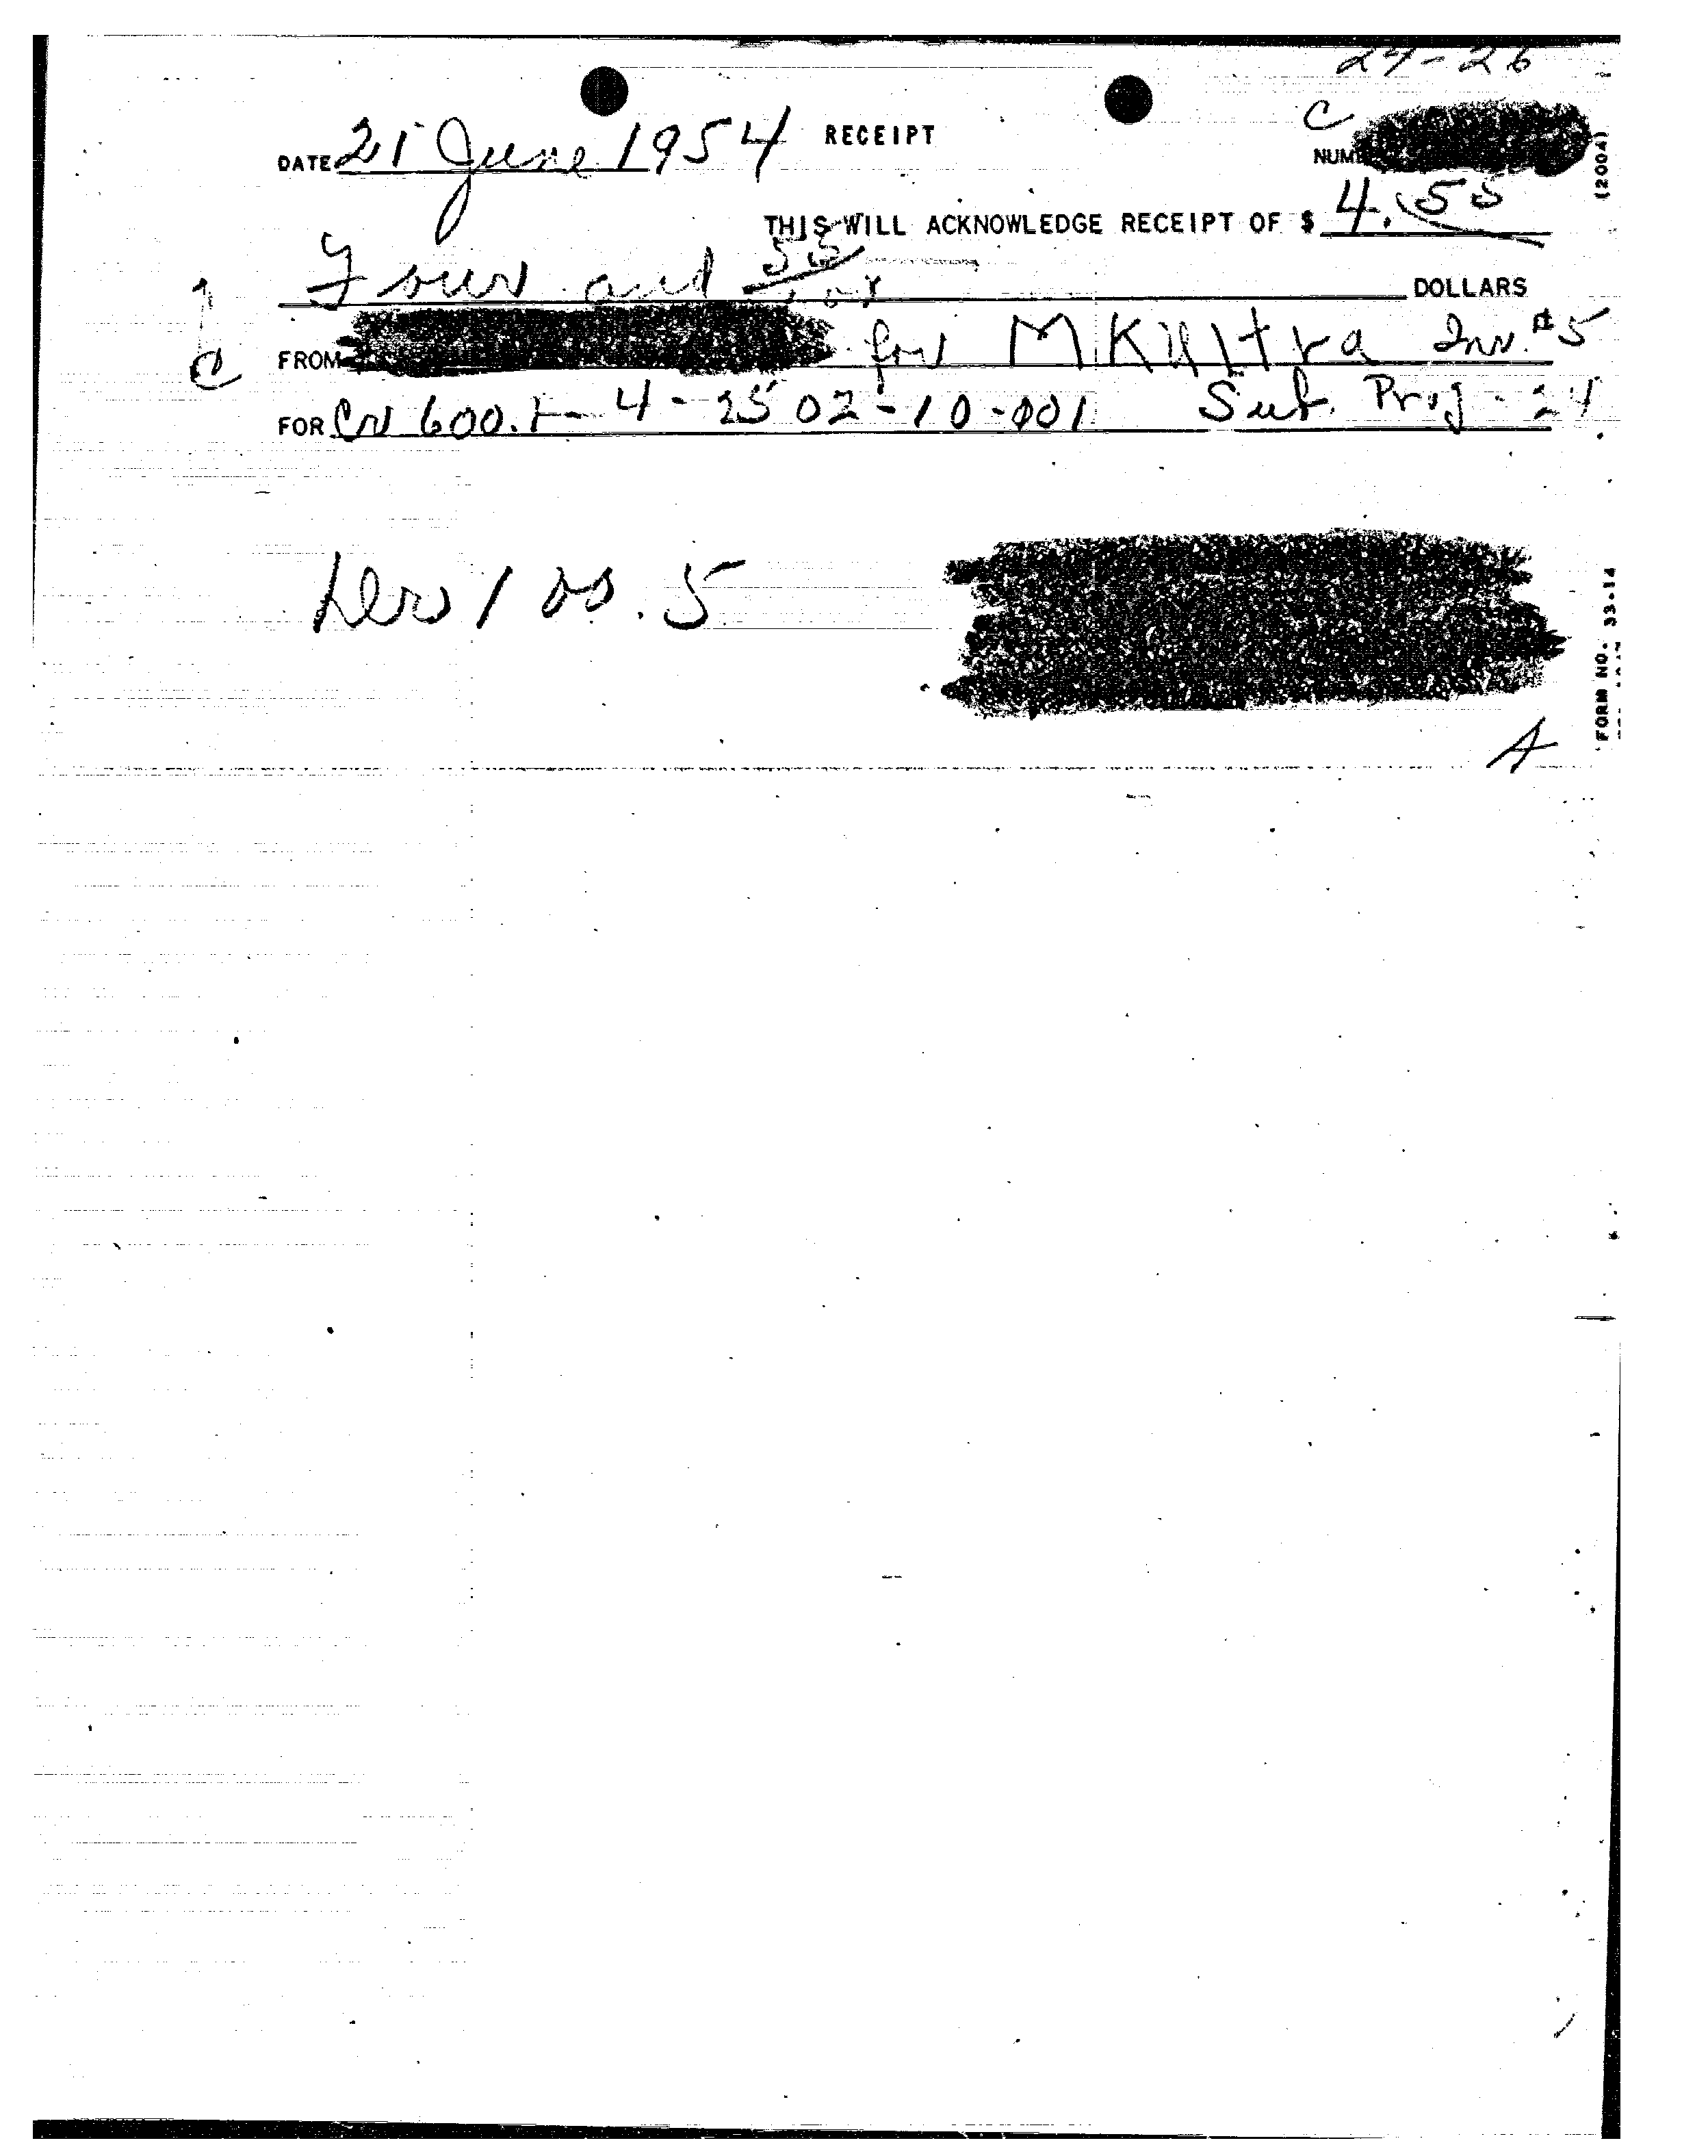 24-26
C
DATE 21 June 1954 RECEIPT
NUM
(2004)
THIS WILL ACKNOWLEDGE RECEIPT OF $ 4.55
Four and 55/100 DOLLARS
C
FROM for MKUltra Inv. #5
FOR 600.1- 4 - 2502-10-001 Sub. Proj - 24
FORM NO. 33-14
A